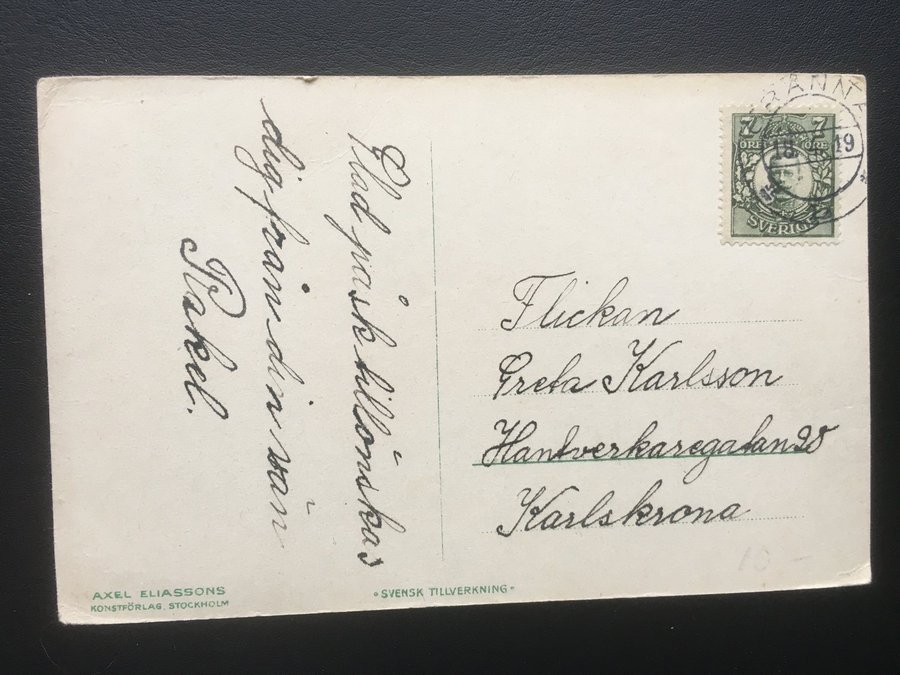 Glad påsk tillönskas
dig från din vän
Rakel.
7 7
ÖRE ÖRE
SVERIGE
19
Flickan
Greta Karlsson
Hantverkaregatan 28
Karlskrona
AXEL ELIASSONS
KONSTFÖRLAG, STOCKHOLM
"SVENSK TILLVERKNING"
10 -